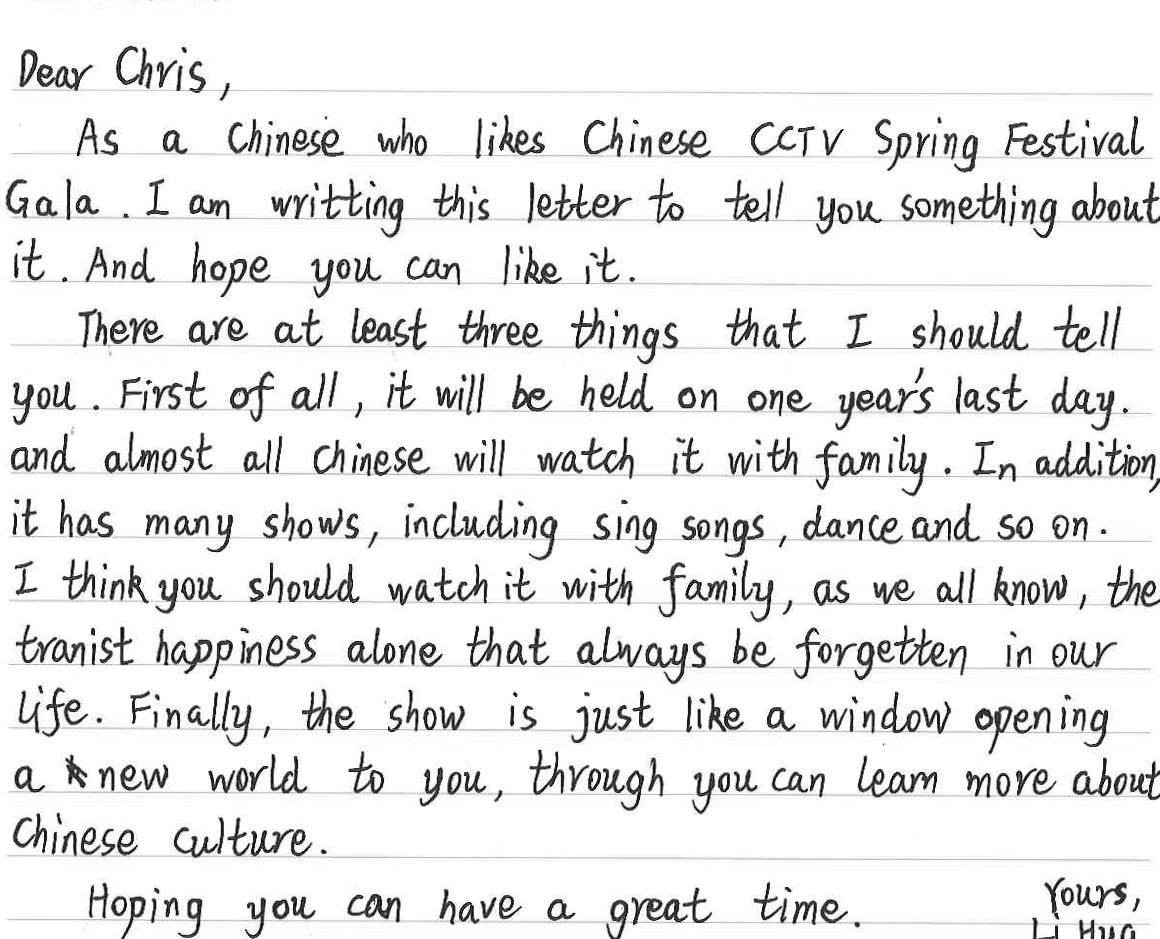 Dear Chris,
As a Chinese who likes Chinese CCTV Spring Festival
Gala. I am writting this letter to tell you something about
it. And hope you can like it.
There are at least three things that I should tell
you. First of all, it will be held on one year's last day.
and almost all Chinese will watch it with family. In addition,
it has many shows, including sing songs, dance and so on.
I think you should watch it with family, as we all know, the
tranist happiness alone that always be forgetten in our
life. Finally, the show is just like a window opening
a new world to you, through you can learn more about
Chinese culture.
Hoping you can have a great time.
Yours,
Li Hua